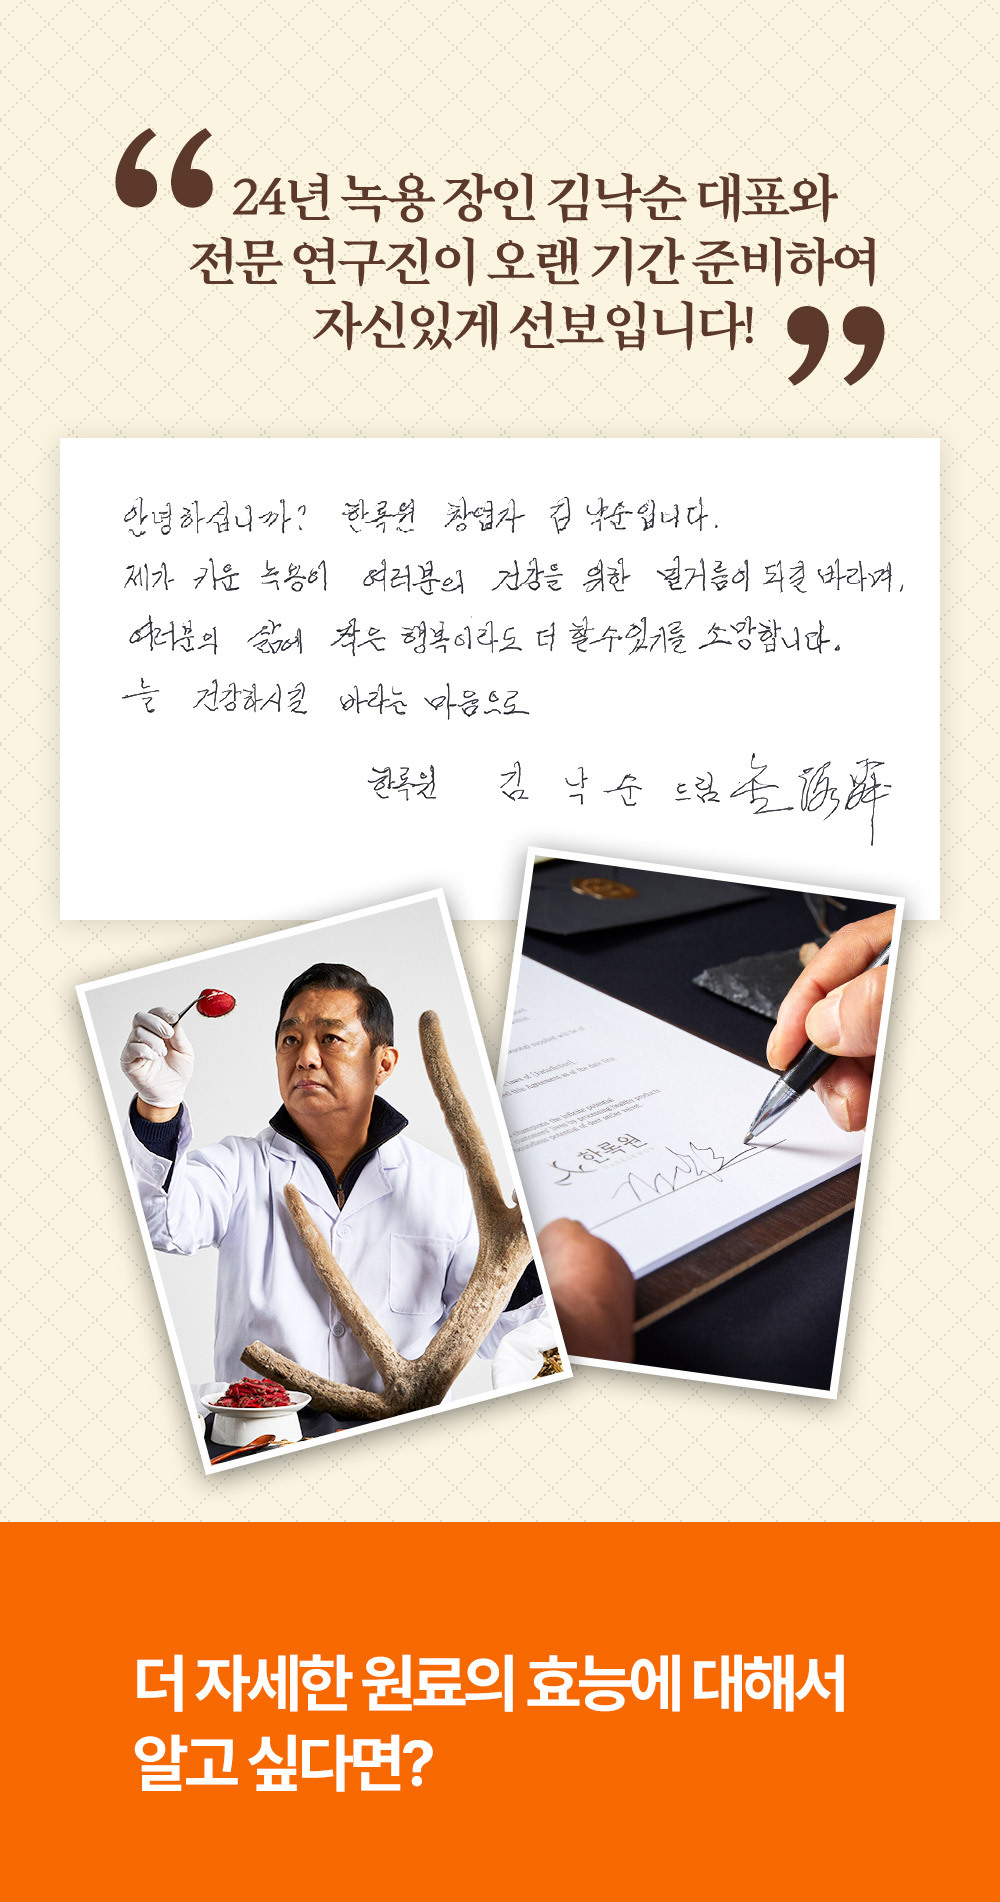 24년 녹용 장인 김낙순 대표와
전문 연구진이 오랜 기간 준비하여
자신있게 선보입니다!
안녕하십니까? 한록원 창업자 김낙순입니다.
제가 키운 녹용이 여러분의 건강을 위한 밑거름이 되길 바라며,
여러분의 삶에 작은 행복이라도 더 할수있기를 소망합니다.
늘 건강하시길 바라는 마음으로
한록원 김 낙 순 드림
supplied will be of
laws of [Jurisdiction].
this Agreement as of the date first
champions the infinite potential
customers' lives by processing healthy products
boundless potential of deer antler velvet.
한록원
더 자세한 원료의 효능에 대해서
알고 싶다면?